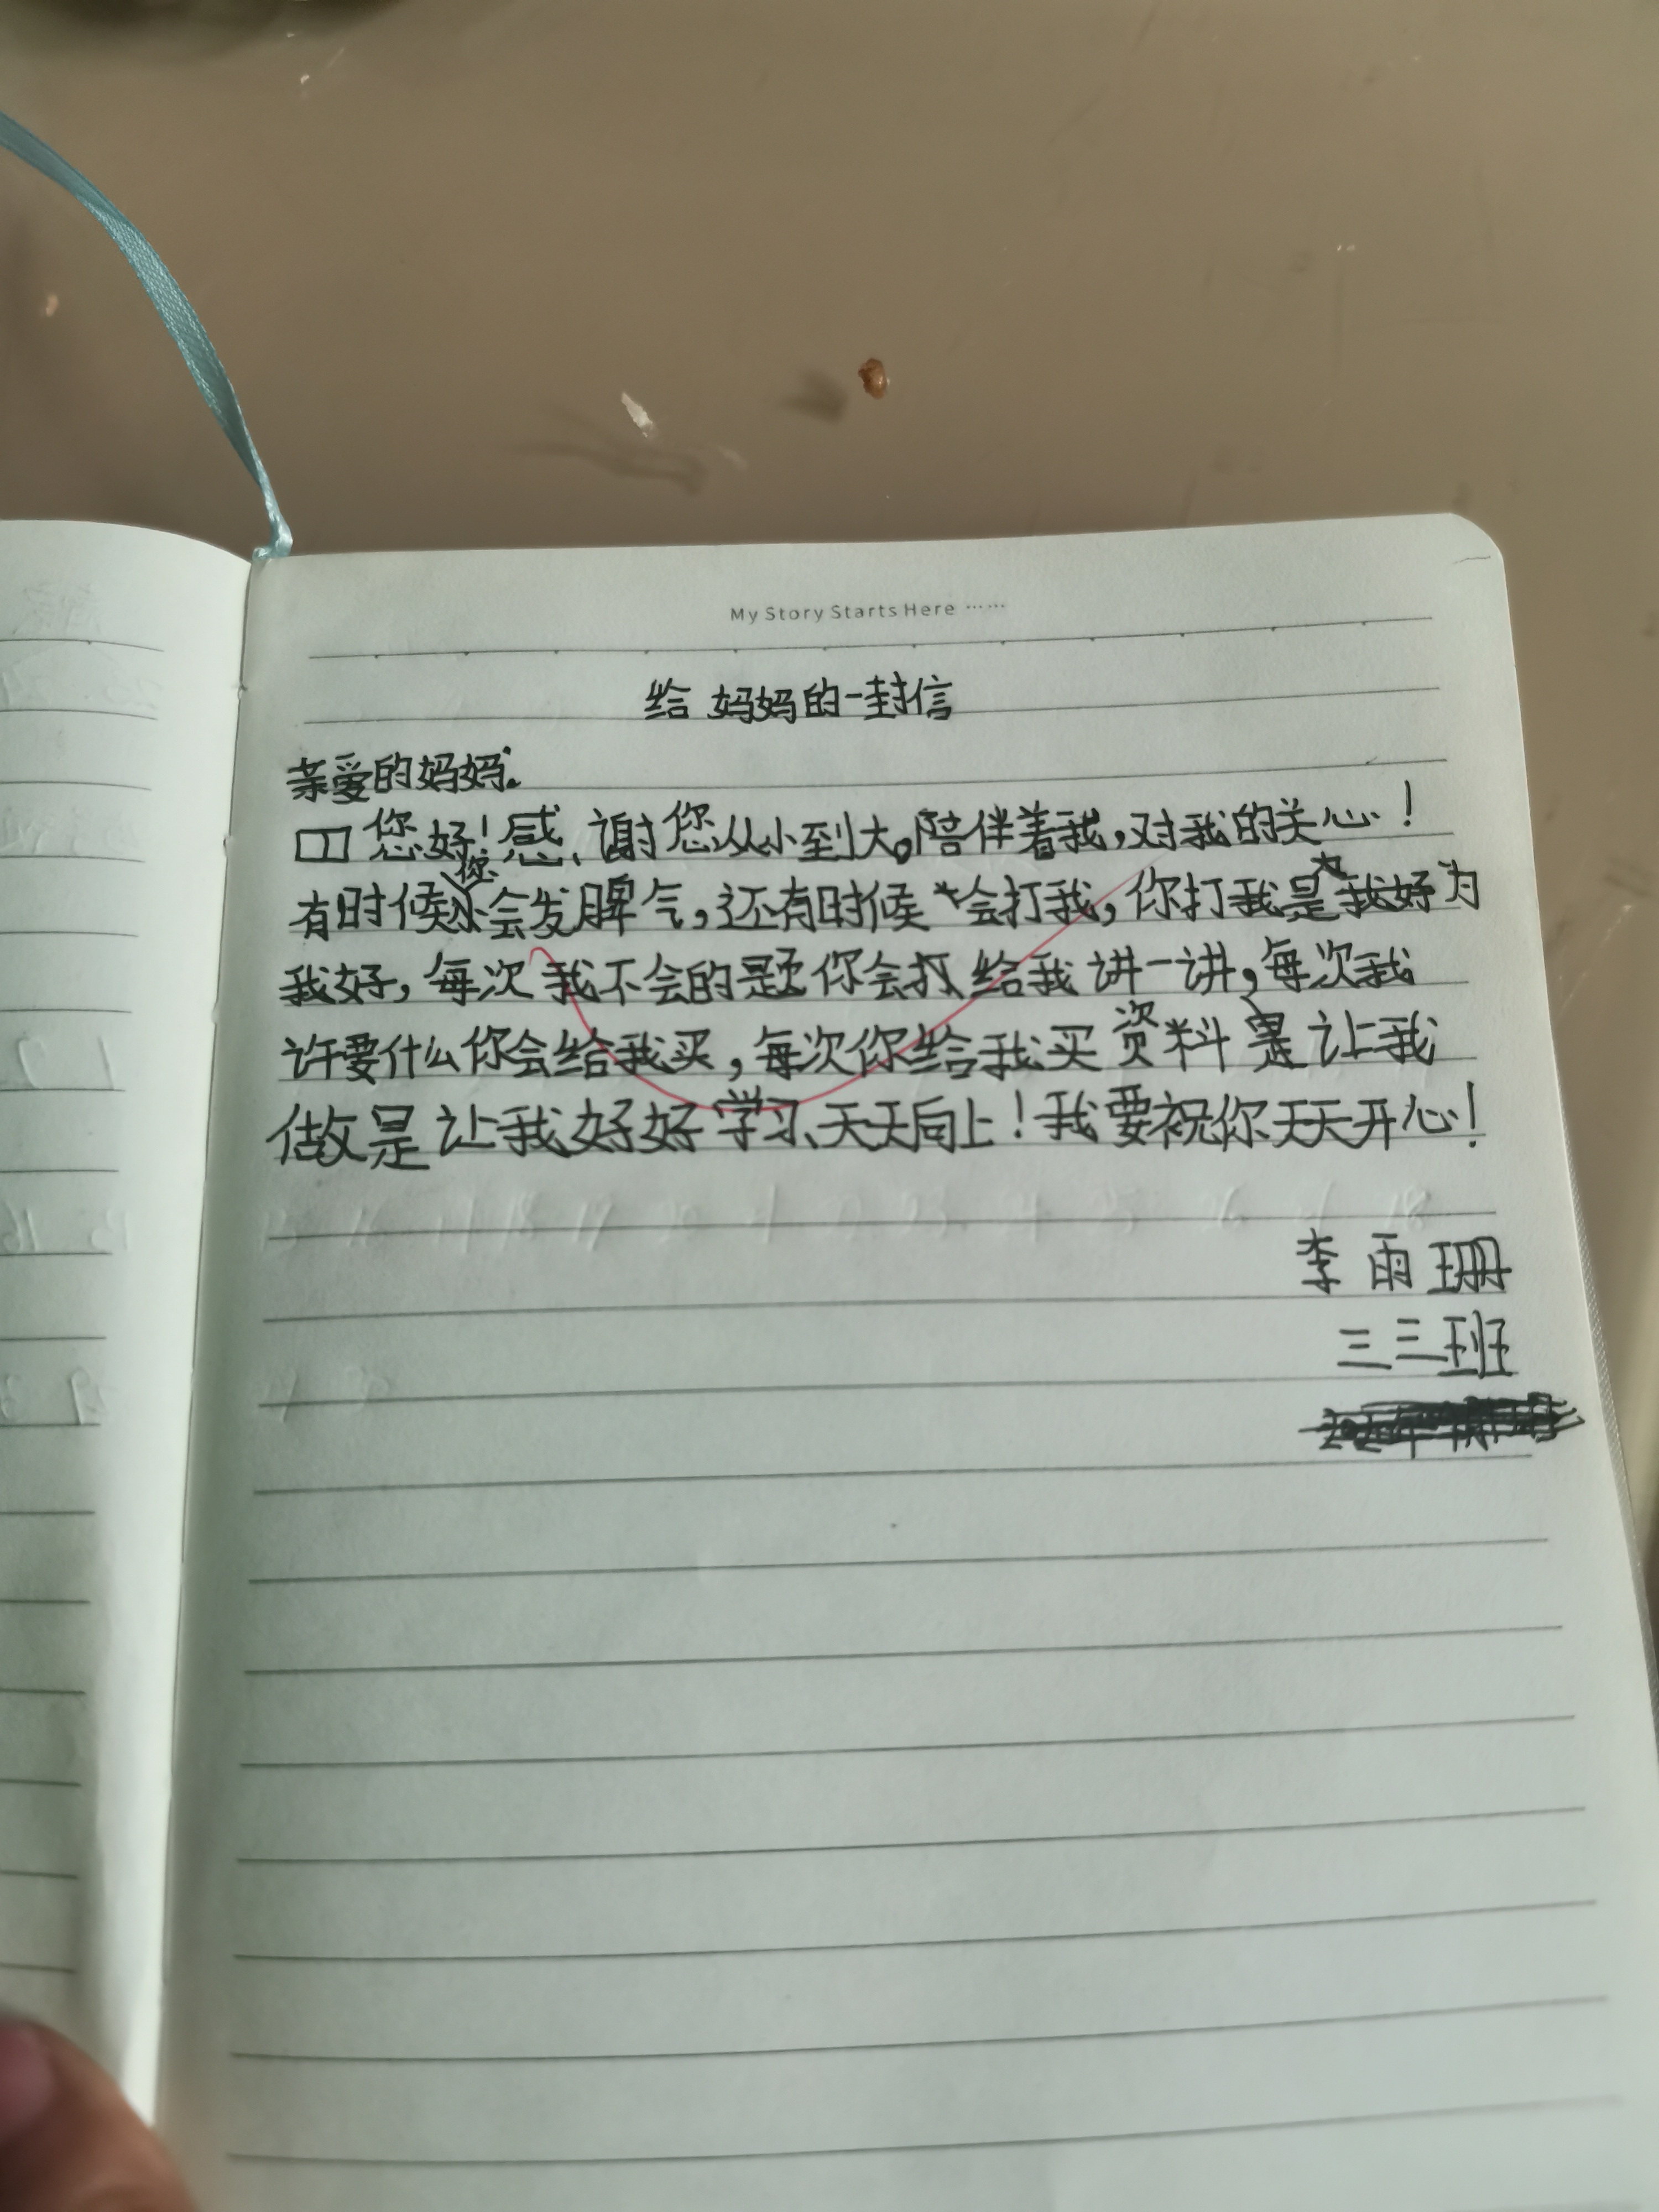 My Story Starts Here ……
给妈妈的一封信
亲爱的妈妈:
您好!感谢您从小到大。陪伴着我,对我的关心!
有时候你会发脾气,还有时候会打我,你打我是为
我好,每次我不会的题你会给我讲一讲,每次我
许要什么你会给我买,每次你给我买资料是让我
做是让我好好学习、天天向上!我要祝你天天开心!
李雨珊
三三班